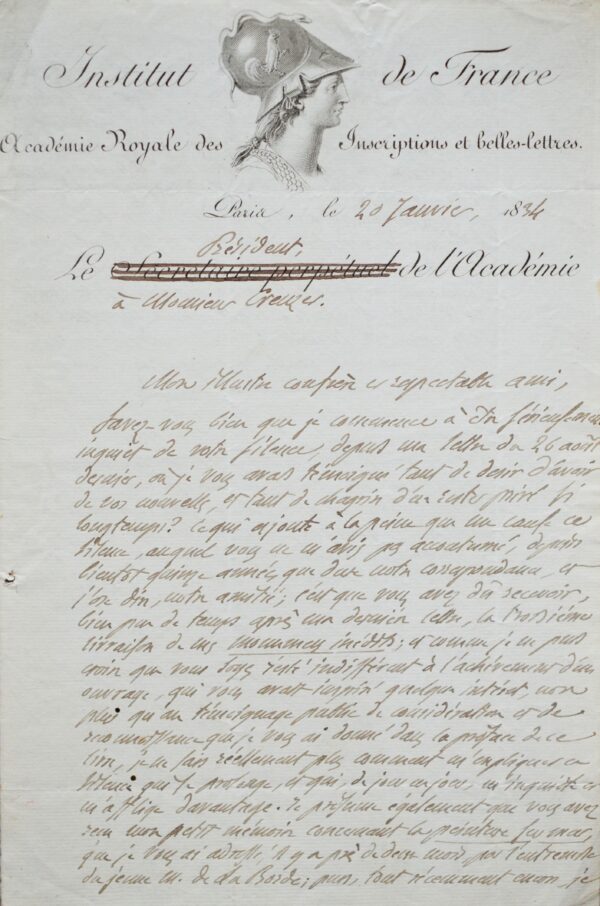 Institut de France
Académie Royale des Inscriptions et belles-lettres.
Paris, le 20 Janvier, 1834
Président,
Le Secrétaire perpétuel de l'Académie
à Monsieur Creuzer.
Mon illustre confrère et respectable ami,
Savez-vous bien que je commence à être sérieusement
inquiet de votre silence, depuis ma lettre du 26 août
dernier, où je vous avais témoigné tant de désir d'avoir
de vos nouvelles, et tant de chagrin d'en rester privé si
longtemps? Ce qui ajoute à la peine que me cause ce
silence, auquel vous ne m'aviez pas accoutumé, depuis
bientôt quinze années que dure notre correspondance, et
j'ose dire, notre amitié; c'est que vous avez dû recevoir,
bien peu de temps après ma dernière lettre, la troisième
livraison de mes monumens inédits; et comme je ne puis
croire que vous soyez resté indifférent à l'achèvement d'un
ouvrage, qui vous avait inspiré quelque intérêt, non
plus qu'au témoignage public de considération et de
reconnaissance que je vous ai donné dans la préface de ce
livre, je ne sais réellement plus comment m'expliquer ce
silence qui se prolonge, et qui, de jour en jour, m'inquiète et
m'afflige davantage. Je présume également que vous avez
reçu mon petit mémoire concernant la peinture sur mur,
que je vous ai adressé, il y a près de deux mois par l'entremise
du jeune M. de La Borde; puis, tout récemment encore, je